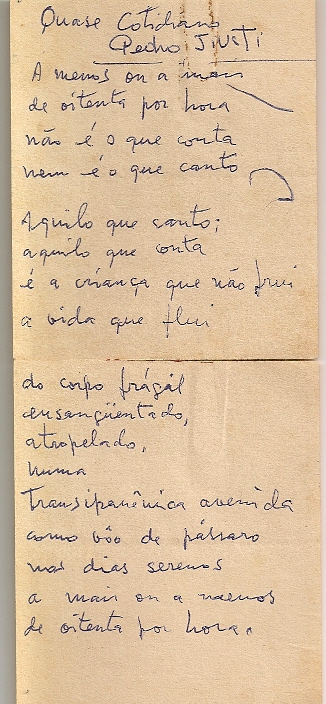 Quase Cotidiano
Pedro JiViTi
A menos ou a mais
de oitenta por hora
não é o que conta
nem é o que canto
Aquilo que canto;
aquilo que conta
é a criança que não frui
a vida que flui
do corpo frágil
ensangüentado,
atropelado,
numa
Transipanêmica avenida
como vôo de pássaro
nos dias serenos
a mais ou a menos
de oitenta por hora.